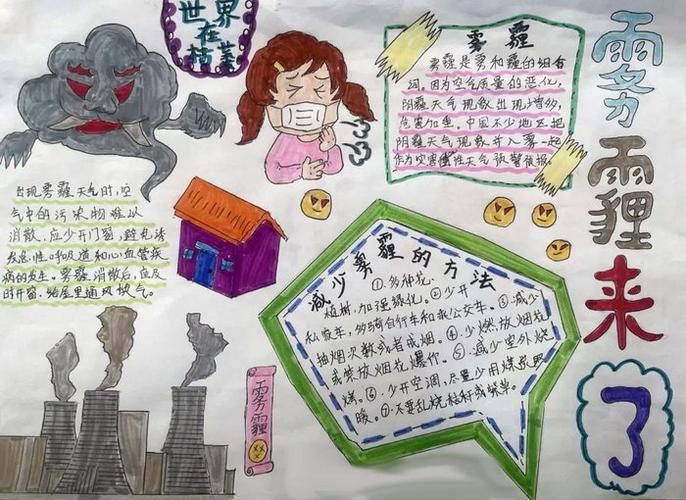 世界
在
枯萎
雾霾来了
雾霾
雾霾是雾和霾的组合
词。因为空气质量的恶化,
阴霾天气现象出现增多,
危害加重。中国不少地区把
阴霾天气现象并入雾一起
作为灾害性天气预警预报。
出现雾霾天气时,空
气中的污染物难以
消散,应少开门窗,避免诱
发急性呼吸道和心血管疾
病的发生。雾霾消散后,应及
时开窗,给屋里通风换气。
减少雾霾的方法
①.多种花.
植树,加强绿化。②少开
私家车,多骑自行车和乘公交车。③.减少
抽烟次数或者戒烟。④.少燃放烟花
或禁放烟花爆竹。⑤.减少室外烧
烤。⑥.少开空调,尽量少用煤炭取
暖。⑦.不要乱烧秸秆或柴草。
雾霾